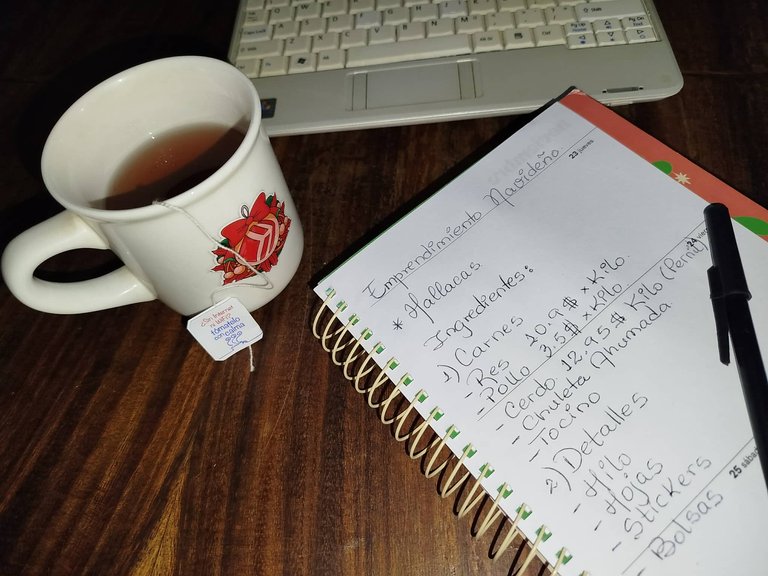 Emprendimiento Navideño.
* Hallacas
Ingredientes:
1) Carnes
- Res 10.9$ x Kilo.
- Pollo 3.5$ x Kilo
- Cerdo 12.95$ Kilo (Pernil)
- Chuleta Ahumada
- Tocino
2) Detalles
- Hilo
- Hojas
- Stickers
- Bolsas
23 jueves
24
25
tómatelo
con calma